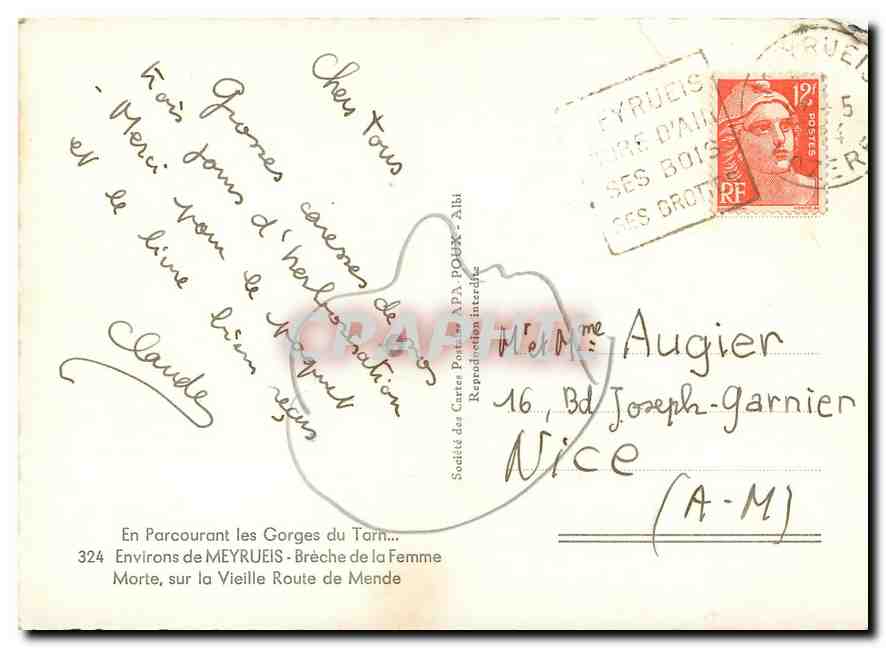 Chers tous
Grosses caresses de nos
trois jours d'herborisation
Merci pour le paquet
et le livre bien reçus
Claude
En Parcourant les Gorges du Tarn...
324 Environs de MEYRUEIS - Brèche de la Femme
Morte, sur la Vieille Route de Mende
Société des Cartes Postales APA-POUX - Albi
Reproduction interdite
EYRUEIS
CURE D'AIR
SES BOIS
SES GROTT
12F
POSTES
RF
RUEIS
5
4
Mr et Mme Augier
16, Bd Joseph-Garnier
Nice
(A-M)